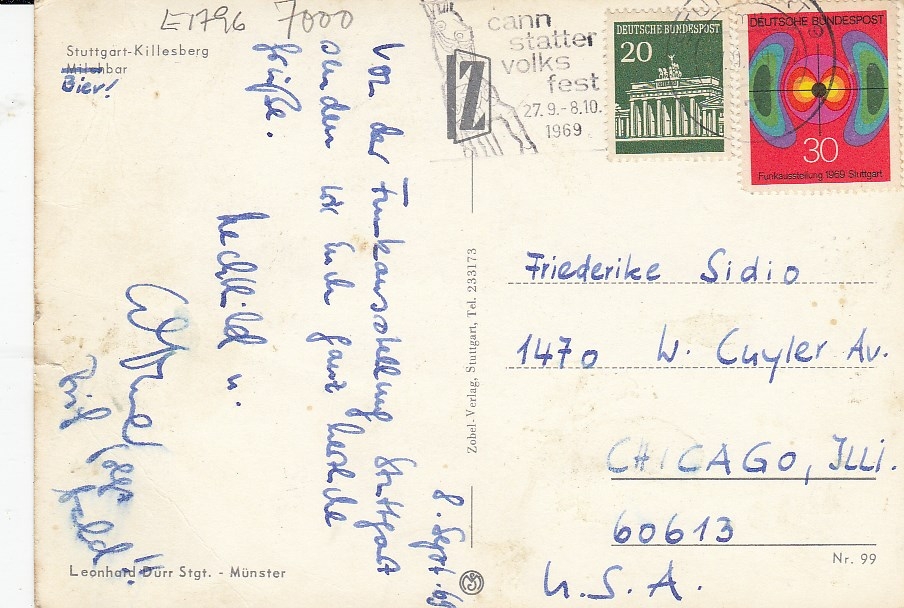 E1796 7000
Stuttgart-Killesberg
Milchbar
Bier!
cann
statter
volks
fest
27.9.-8.10.
1969
Z
DEUTSCHE BUNDESPOST
20
DEUTSCHE BUNDESPOST
30
Funkausstellung 1969 Stuttgart
8. Sept. 69
Von der Funkausstellung Stuttgart
senden wir Euch ganz herzliche
Grüße.
Mechthild u.
Zobel-Verlag, Stuttgart, Tel. 233173
Friederike Sidio
1470 W. Cuyler Av.
CHICAGO, ILLI.
60613
U.S.A.
Leonhard Dürr Stgt. - Münster
Nr. 99